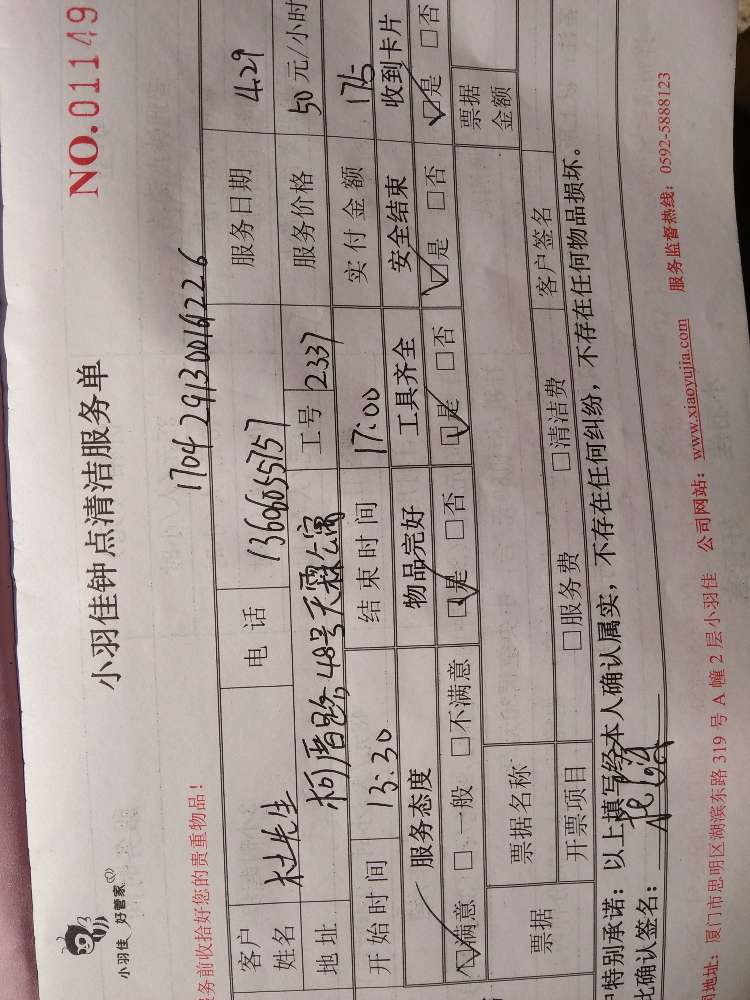 小羽佳 好管家
小羽佳钟点清洁服务单
NO.01149
务前收拾好您的贵重物品！
客户姓名 杜先生 电话 13606055757 服务日期 4.29
地址 柯厝路48号天霖公寓 工号 2337 服务价格 50元/小时
开始时间 13:30 结束时间 17:00 实付金额 175
服务态度 物品完好 工具齐全 安全结束 收到卡片
☑满意 □一般 □不满意 ☑是 □否 ☑是 □否 ☑是 □否 ☑是 □否
票据 票据名称 票据金额
开票项目 □服务费 □清洁费 客户签名
特别承诺：以上填写经本人确认属实，不存在任何纠纷，不存在任何物品损坏。
此确认签名：
地址：厦门市思明区湖滨东路319号A幢2层小羽佳 公司网站：www.xiaoyujia.com 服务监督热线：0592-5888123